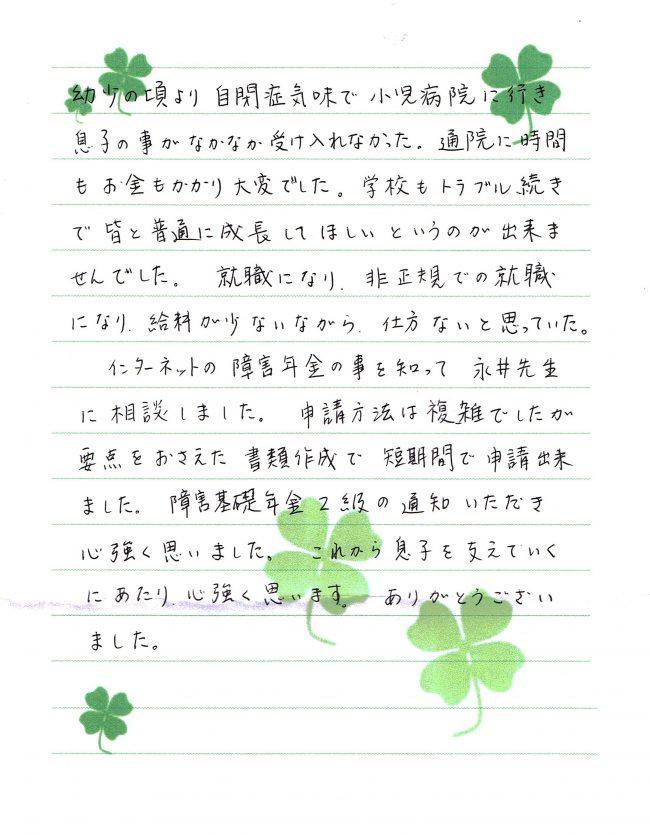 幼少の頃より自閉症気味で小児病院に行き
息子の事がなかなか受け入れなかった。通院に時間
もお金もかかり大変でした。学校もトラブル続き
で皆と普通に成長してほしいというのが出来ま
せんでした。 就職になり、非正規での就職
になり、給料が少ないながら、仕方ないと思っていた。
インターネットの障害年金の事を知って 永井先生
に相談しました。 申請方法は複雑でしたが
要点をおさえた書類作成で 短期間で申請出来
ました。 障害基礎年金2級の通知いただき
心強く思いました。 これから息子を支えていく
にあたり心強く思います。 ありがとうござい
ました。